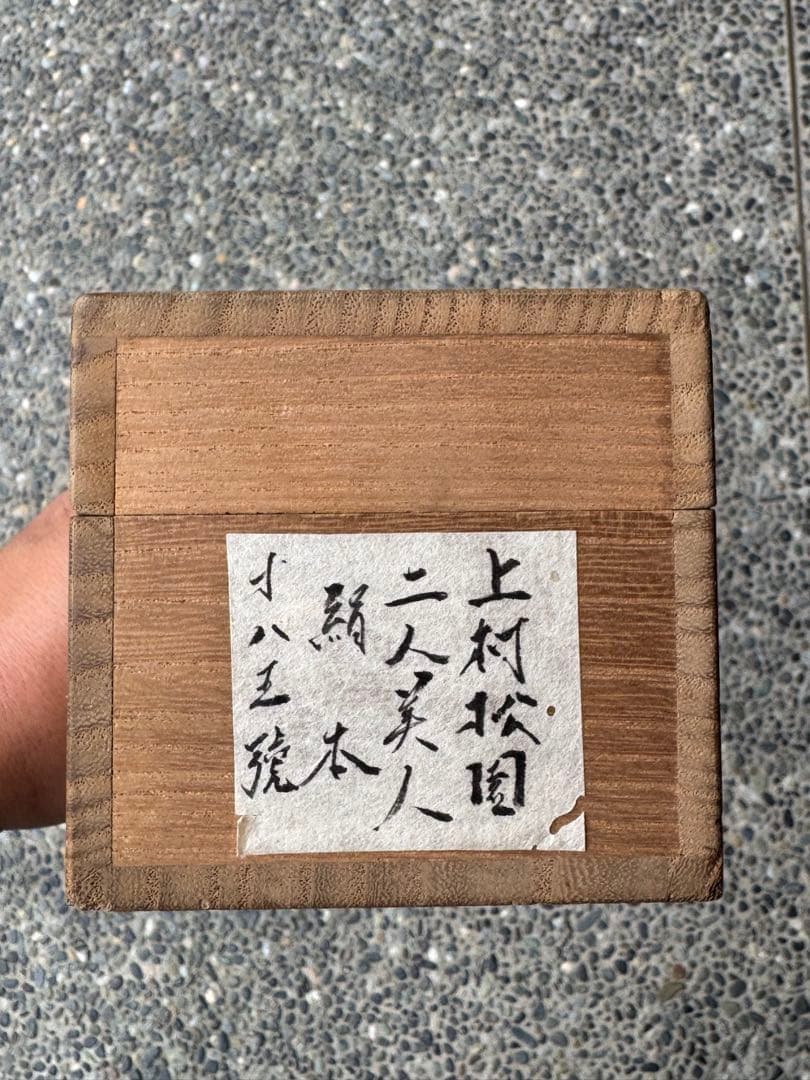 上村松園
二人美人
絹本
才八五號